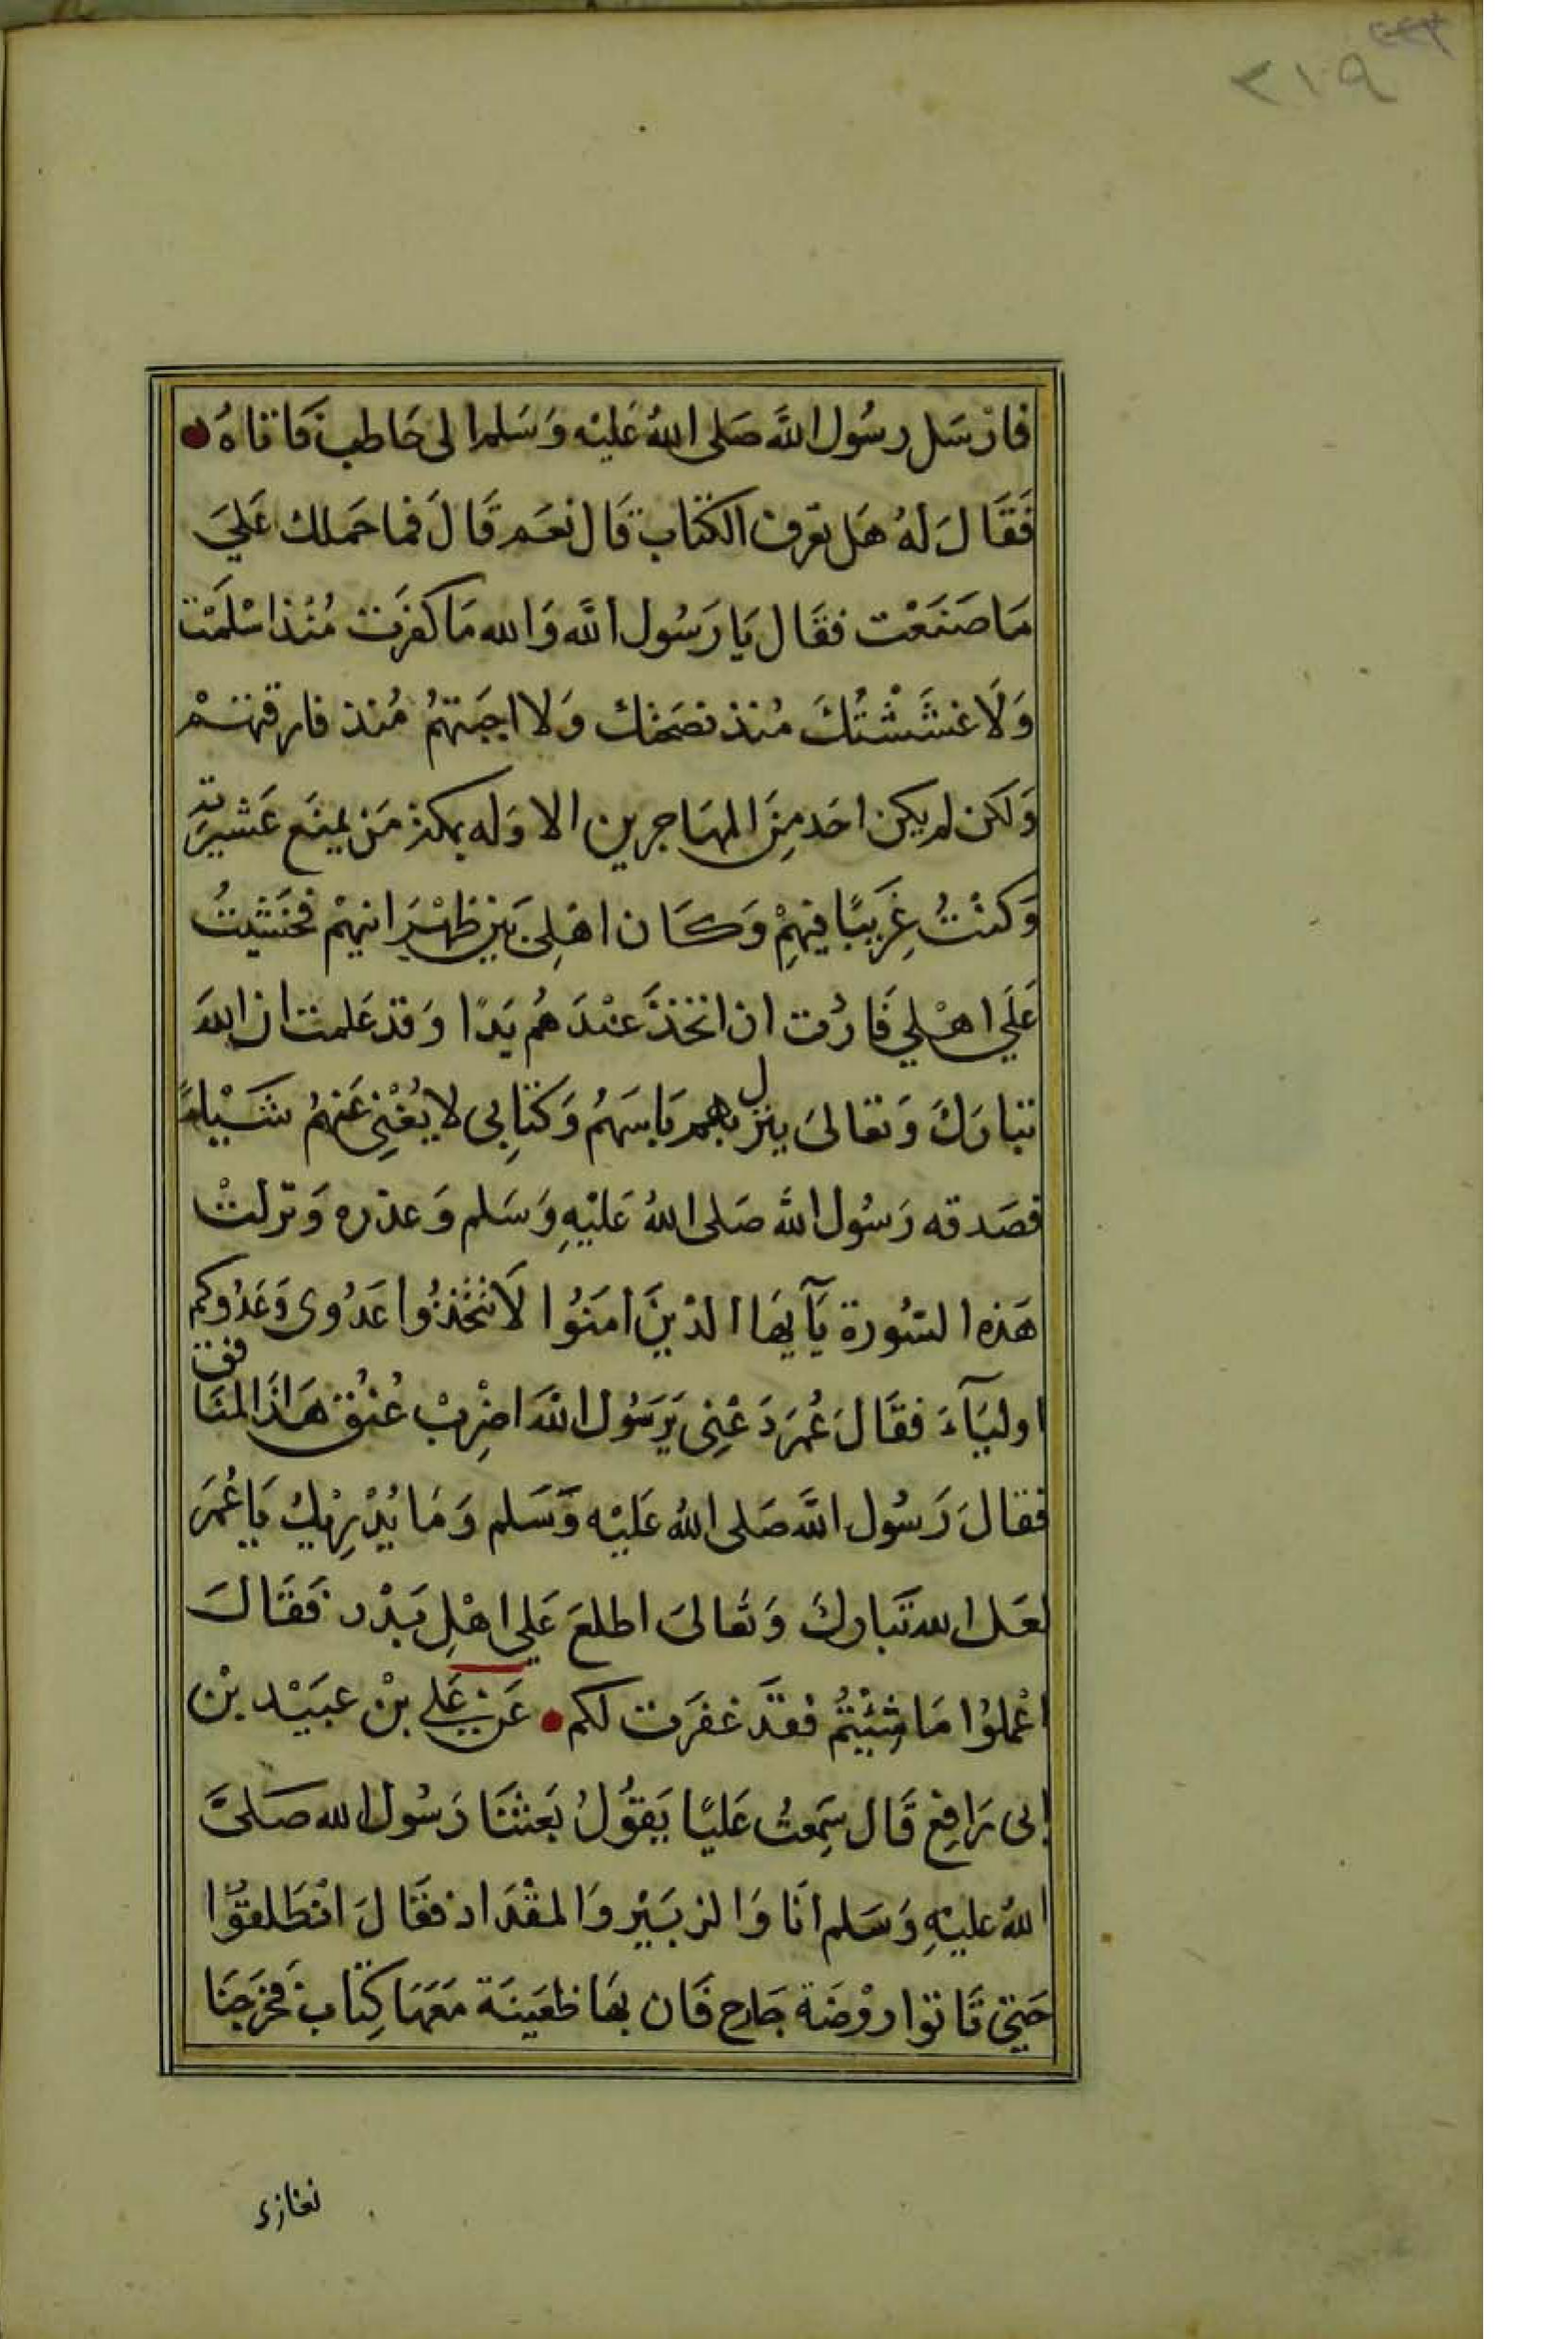 ٢١٩
فارْسَل رسُول اللَّه صَلى اللهُ عَليْه وَسَلم الى حَاطب فَاتاهُ
فَقَالَ لهُ هَل تعرف الكتاب قَال نعَم قَالَ فما حَملك عَليَ
مَا صَنعْت فقَال يَا رَسُول اللَّه وَالله مَا كفرَت مُنْذ اسْلَمْت
وَلَا غشَشْتُكَ مُنذ نصَحتك وَلا اجبَتهُم مُنذ فارقتهمْ
وَلكن لم يكن احَد مِنَ المهَاجرين الا وَله بمكة مَن يمنَع عَشيرَته
وَكنْتُ غِرَيبًا فيهِمْ وَكَان اهْلِى بَين ظهْرَانيهمْ فخَشيتُ
عَلَي اهْلي فَاردْت ان اتخذَ عنْدَهُم يَدًا وَقد عَلمت ان اللهَ
تبَاركَ وَتعَالىَ ينزل بهم بَاسَهُم وَكتَابِى لا يُغْنِى عَنهُم شَيْاءً
فصَدقه رَسُول اللَّه صَلى اللهُ عَليْهِ وَسَلم وَعذره وَنزلتْ
هَذه السُورة يَآيهَا الذينَ امَنوُا لَا تتْخَذوُا عَدُوى وَعَدُوكم
اوليَآءَ فقَالَ عُمَر دَعْنِى يَرَسُول اللهَ اضْرِبْ عُنُق هَاذَا المنَافق
فقالَ رَسُول اللَّه صَلى اللهُ عَليْه وَسَلم وَمَا يُدْرِيْكَ يَا عُمَرَ
لعَل الله تَبَاركَ وَتعَالىَ اطلعَ عَلي اهْلِ بَدْر فَقَالَ
اعْملوُا مَا شِئْتُم فقدَ غفرَت لكم عَن عَلي بنْ عبيَدْ بن
ابى رَافِع قَال سَمِعتُ عَليًا يَقوُلُ بَعثنَا رَسُول الله صَلىَ
اللهُ عليْهِ وَسَلم انَا وَالزبَيْر وَالمقْدَاد فقَالَ انطَلقوُا
حَتى تَاتوا روْضَة خاح فَان بهَا ظعَينَة مَعَهَا كِتَاب فخرَجنَا